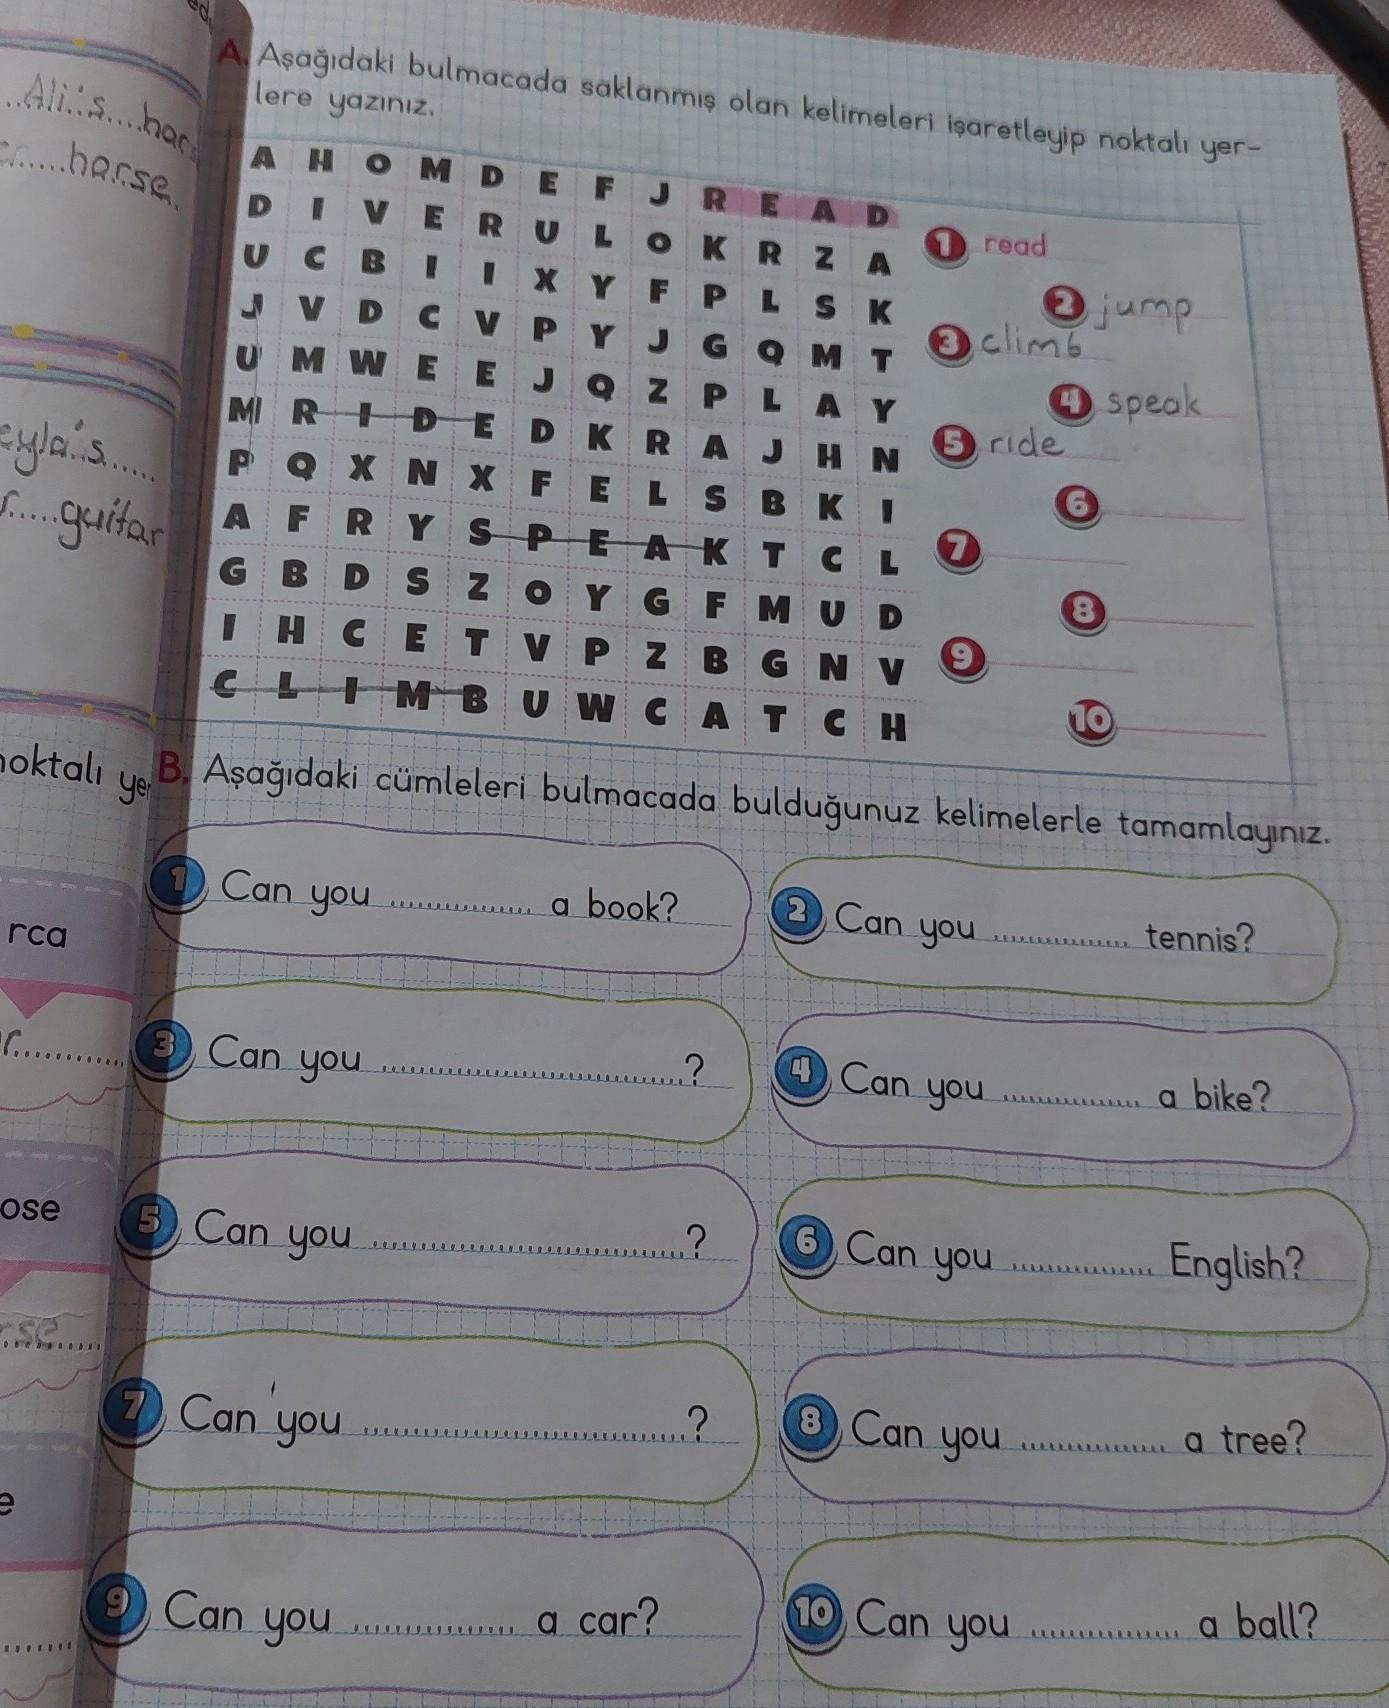 ed.
Ali's har
horse.
eyla's
guitar
noktalı yer
rca
r
ose
rse
e
A. Aşağıdaki bulmacada saklanmış olan kelimeleri işaretleyip noktalı yer-
lere yazınız.
A H O M D E F J R E A D
D I V E R U L O K R Z A
U C B I I X Y F P L S K
J V D C V P Y J G Q M T
U M W E E J Q Z P L A Y
M R I D E D K R A J H N
P Q X N X F E L S B K I
A F R Y S P E A K T C L
G B D S Z O Y G F M U D
I H C E T V P Z B G N V
C L I M B U W C A T C H
1 read
2 jump
3 climb
4 speak
5 ride
6
7
8
9
10
B. Aşağıdaki cümleleri bulmacada bulduğunuz kelimelerle tamamlayınız.
1 Can you ................ a book?
2 Can you ................ tennis?
3 Can you ................................?
4 Can you ................ a bike?
5 Can you ................................?
6 Can you ................ English?
7 Can you ................................?
8 Can you ................ a tree?
9 Can you ................ a car?
10 Can you ................ a ball?